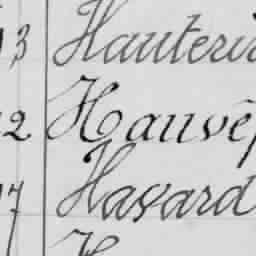 3 Hauteri
2 Hauvê
7 Havard